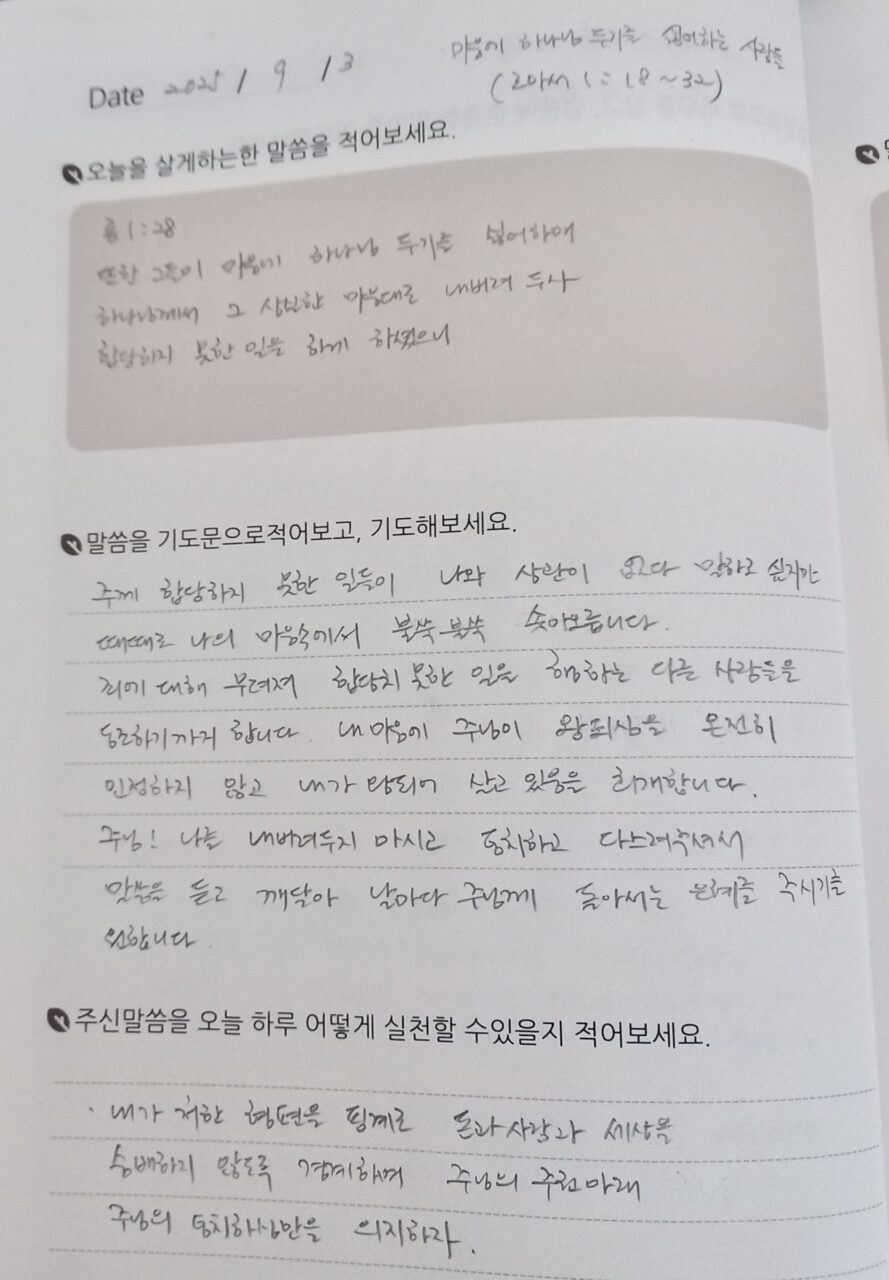 마음에 하나님 두기를 싫어하는 사람들
Date 2025 / 9 / 3
(로마서 1:18~32)
오늘을 살게하는한 말씀을 적어보세요.
롬 1:28
또한 그들이 마음에 하나님 두기를 싫어하매
하나님께서 그 상실한 마음대로 내버려 두사
합당하지 못한 일을 하게 하셨으니
말씀을 기도문으로적어보고, 기도해보세요.
주께 합당하지 못한 일들이 나와 상관이 없다 말하고 싶지만
때때로 나의 마음속에서 불쑥불쑥 솟아오릅니다.
죄에 대해 무뎌져 합당치 못한 일을 행하는 다른 사람들을
동조하기까지 합니다. 내 마음에 주님이 왕되심을 온전히
인정하지 않고 내가 왕되어 살고 있음을 회개합니다.
주님! 나를 내버려두지 마시고 통치하고 다스려주셔서
말씀을 듣고 깨달아 날마다 주님께 돌아서는 은혜를 주시기를
원합니다.
주신말씀을 오늘 하루 어떻게 실천할 수있을지 적어보세요.
· 내가 처한 형편을 핑계로 돈과 사람과 세상을
숭배하지 않도록 경계하며 주님의 주권아래
주님의 통치하심만을 의지하자.